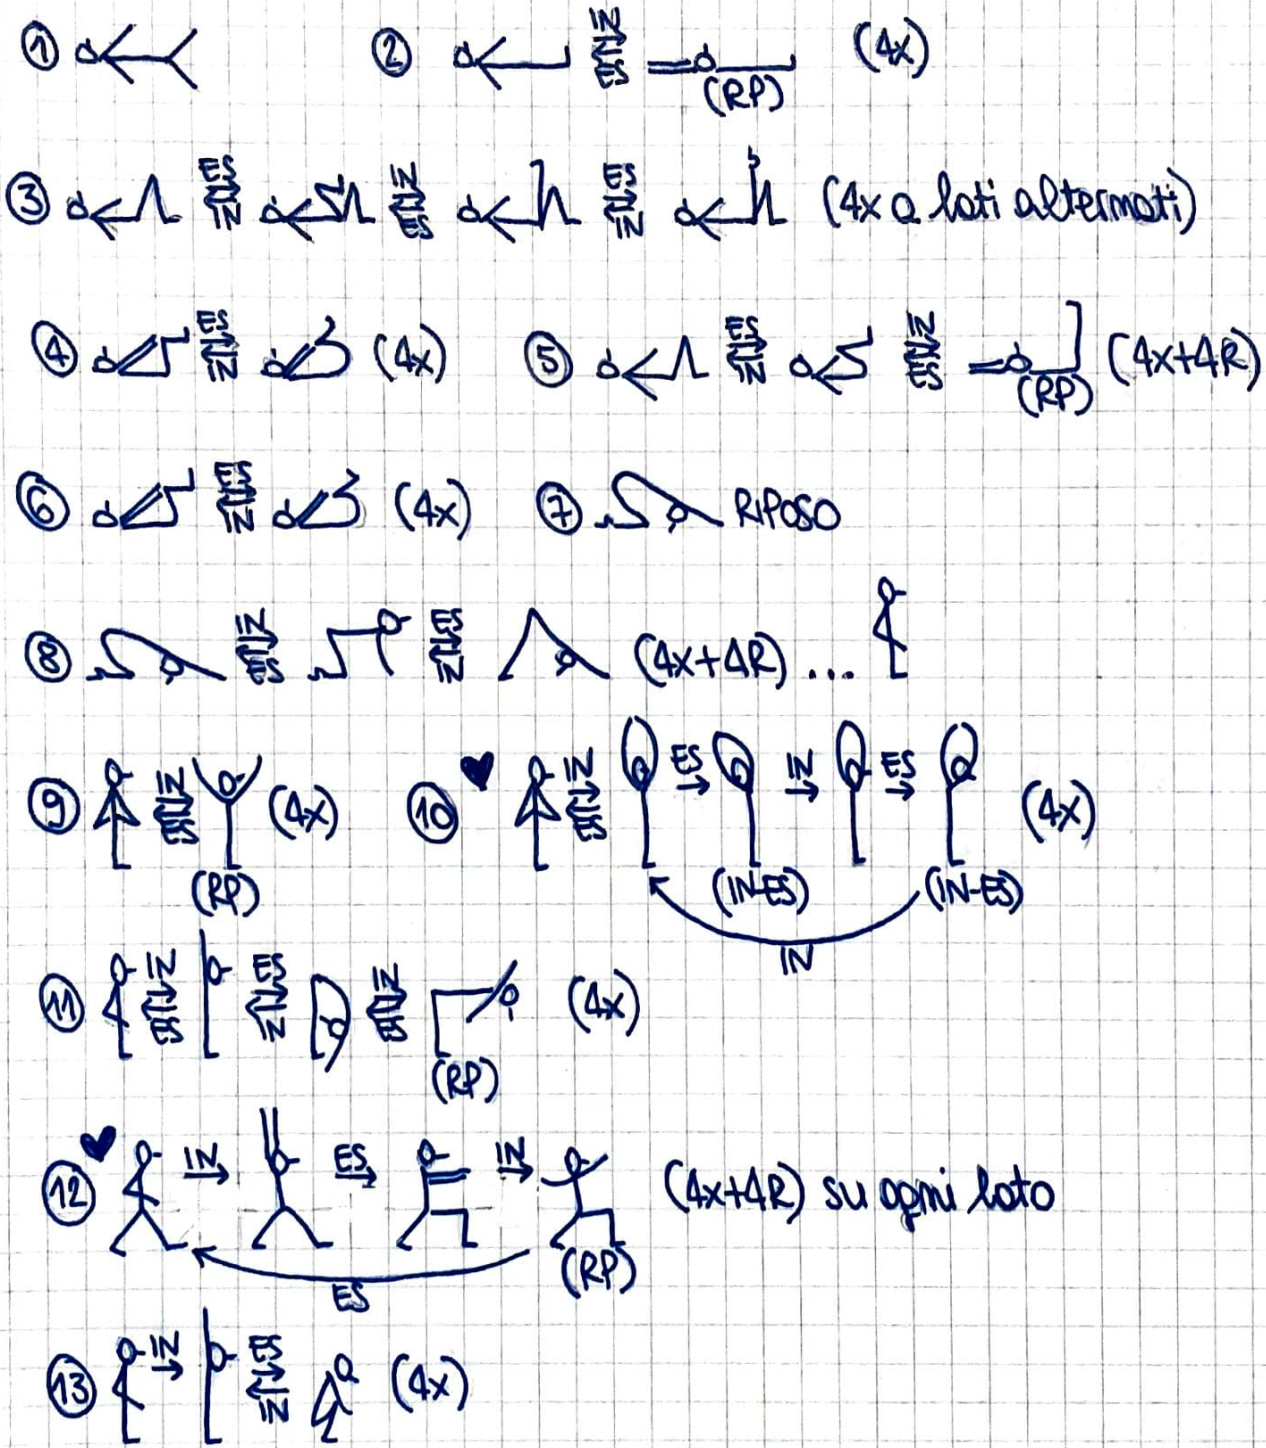 ① ② IN ES (RP) (4x)
③ ES IN IN ES ES IN (4x a lati alternati)
④ ES IN (4x) ⑤ ES IN IN ES (RP) (4x+4R)
⑥ ES IN (4x) ⑦ RIPOSO
⑧ IN ES ES IN (4x+4R) ...
⑨ IN ES (RP) (4x) ⑩ IN ES ES IN ES (4x)
(IN-ES) (IN-ES)
IN
⑪ IN ES ES IN IN ES (RP) (4x)
⑫ IN ES IN (RP) (4x+4R) su ogni lato
ES
⑬ IN ES IN (4x)